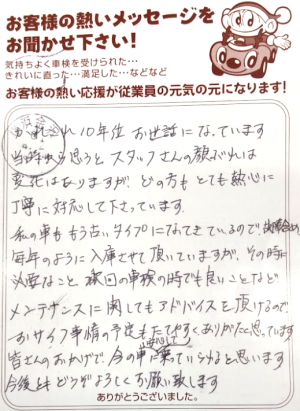 お客様の熱いメッセージを
お聞かせ下さい!
気持ちよく車検を受けられた…
きれいに直った…満足した…などなど
お客様の熱い応援が従業員の元気の元になります!
かれこれ10年位お世話になっています
当時から思うとスタッフさんの顔ぶれは
変化はありますが、どの方もとても熱心に
丁寧に対応して下さっています。
私の車ももう古いタイプになってきているので
毎年のように入庫させて頂いていますが、その時に
必要なこと 次回の車検の時でも良いことなど
メンテナンスに関してもアドバイスを頂けるので
おサイフ事情の予定もたてやすくありがたいと思っています
皆さんのおかげで、今の車に安心して乗っていられると思います
今後ともどうぞよろしくお願い致します
ありがとうございました。